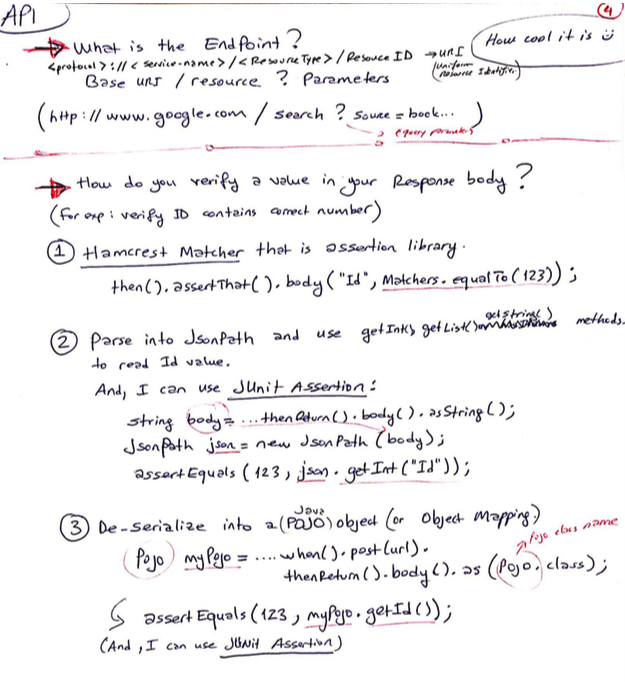 API
4
How cool it is
What is the Endpoint?
<protocol>://<service-name>/<ResourceType>/Resouce ID → URI
(Uniform Resource Identifier)
Base URI / resource ? Parameters
(http://www.google.com/search ? souce = book...)
query parameter
How do you verify a value in your Response body?
(For exp: verify ID contains correct number)
1 Hamcrest Matcher that is assertion library.
then().assertThat().body("Id", Matchers.equalTo(123));
2 Parse into JsonPath and use getInt() getList() getString() methods.
to read Id value.
And, I can use JUnit Assertion:
string body = ...thenReturn().body().asString();
JsonPath json = new JsonPath(body);
assertEquals(123, json.getInt("Id"));
3 De-serialize into a (POJO) object (or Object Mapping)
Java
Pojo class name
Pojo myPojo = ....when().post(url).
thenReturn().body().as(Pojo.class);
assertEquals(123, myPojo.getId());
(And, I can use JUNit Assertion)